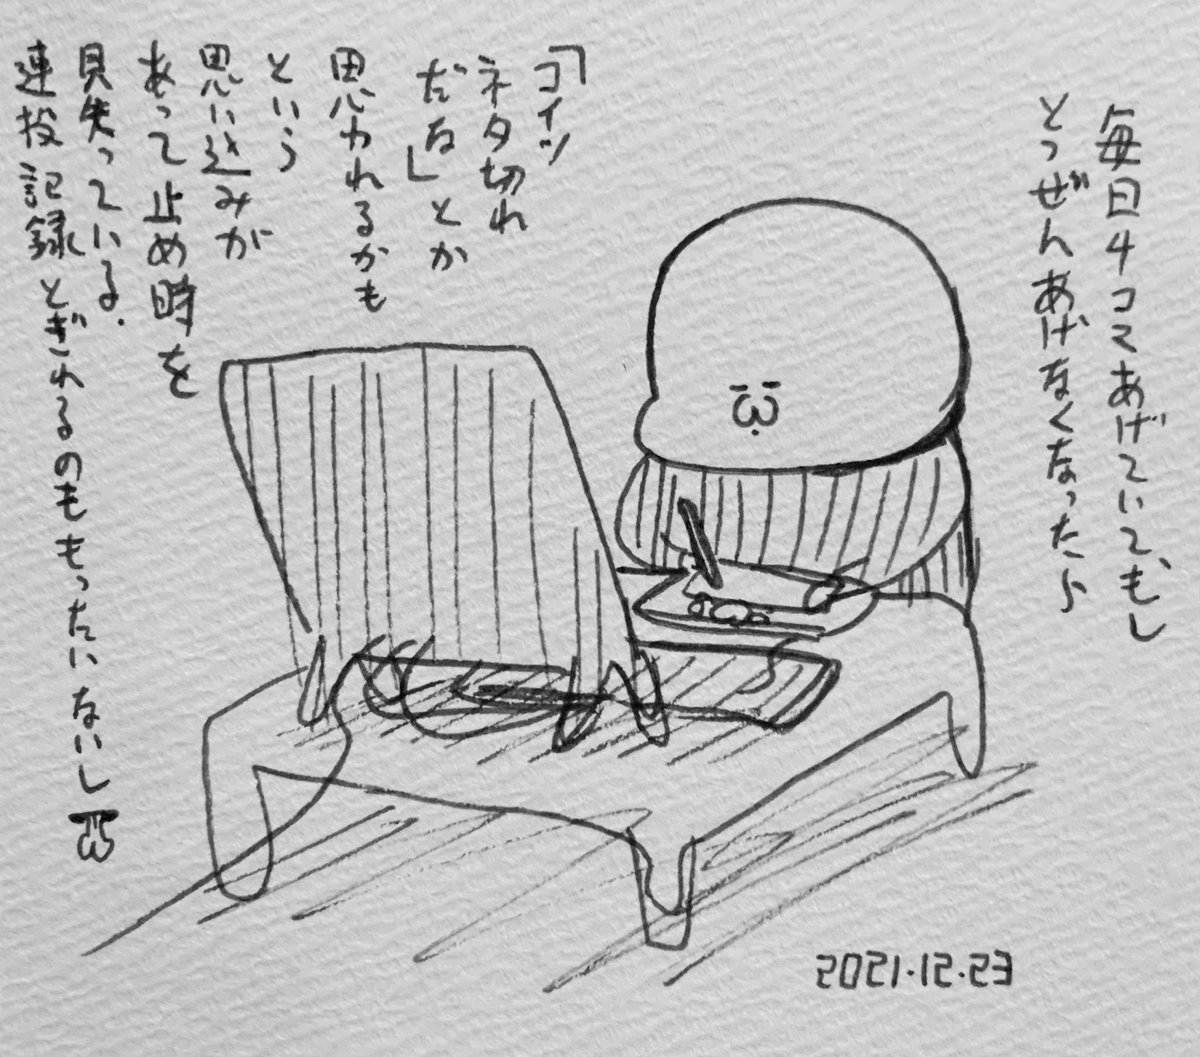 毎日4コマあげていて、もし
とつぜんあげなくなったら
「コイツ
ネタ切れ
だな」とか
思われるかも
という
思い込みが
あって止め時を
見失っている.
連投記録とぎれるのももったいないし
2021.12.23